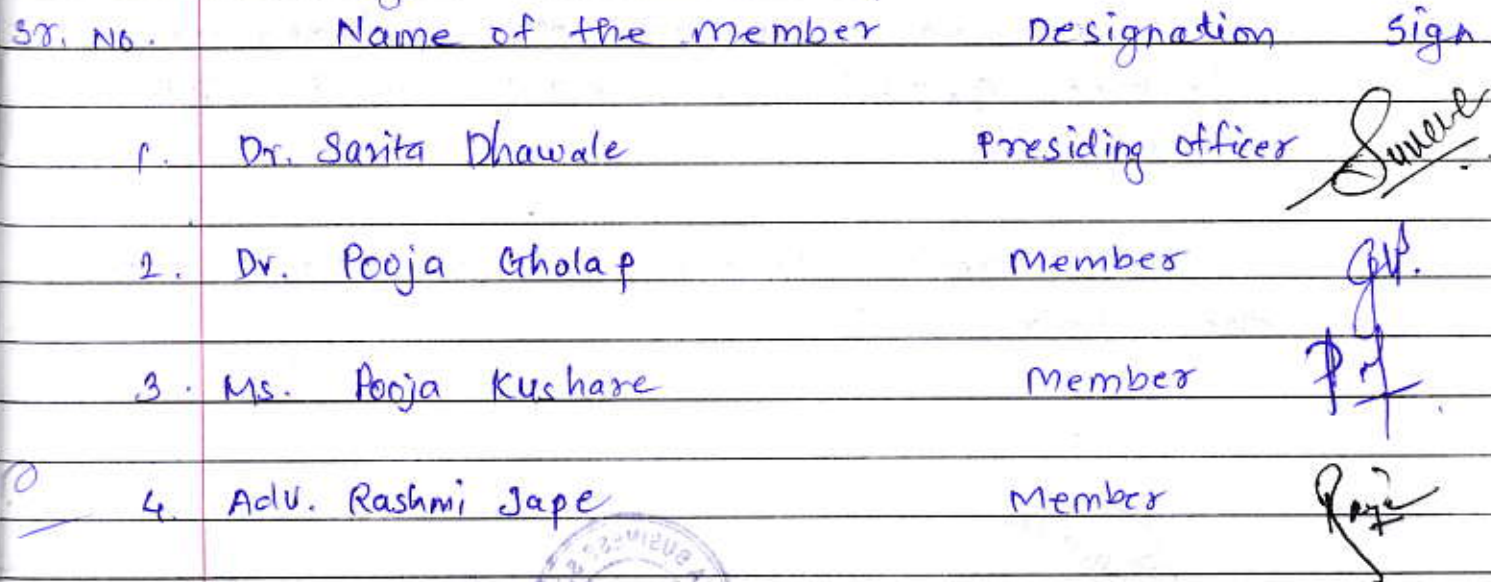 Sr. No. Name of the member Designation Sign
1. Dr. Sarita Dhawale Presiding officer
2. Dr. Pooja Gholap Member
3. Ms. Pooja Kushare Member
4. Adv. Rashmi Jape Member